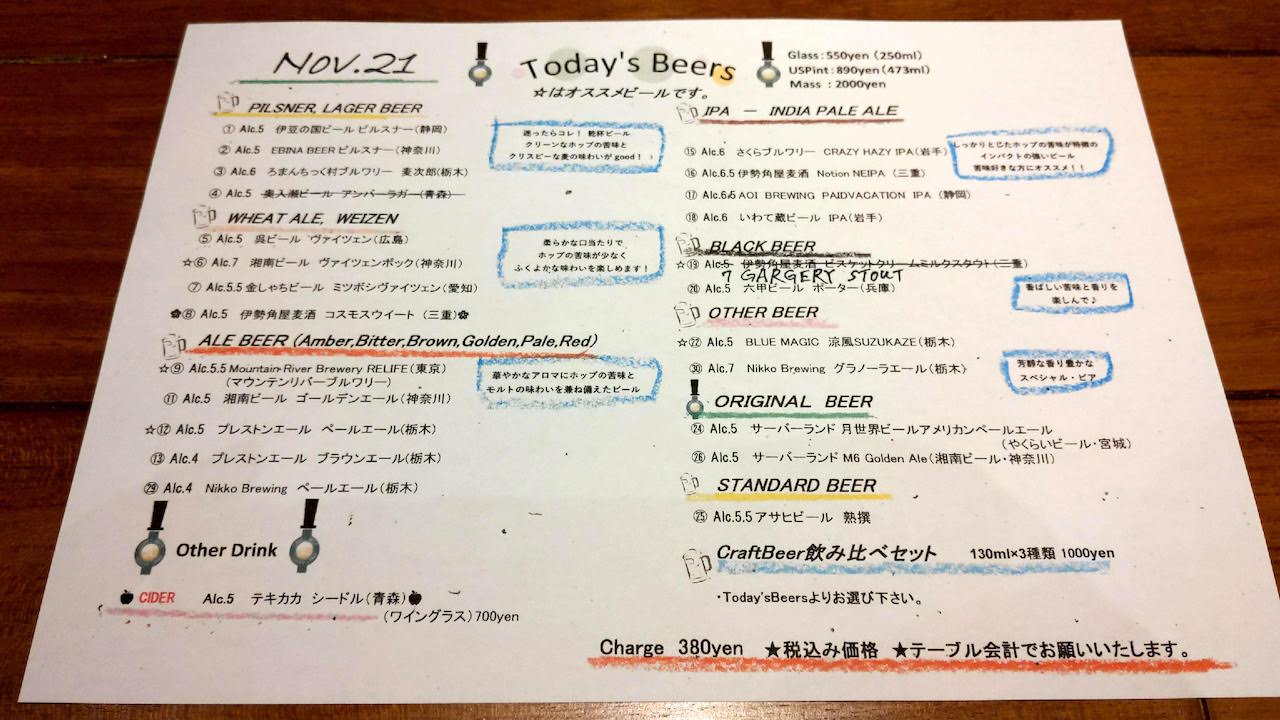 NOV.21
Today's Beers
☆はオススメビールです。
Glass：550yen（250ml）
USPint：890yen（473ml）
Mass : 2000yen
PILSNER, LAGER BEER
① Alc.5 伊豆の国ビール ピルスナー（静岡）
② Alc.5 EBINA BEER ピルスナー（神奈川）
③ Alc.6 ろまんちっく村ブルワリー 麦次郎（栃木）
④ Alc.5 奥入瀬ビール アンバーラガー（青森）
迷ったらコレ！ 乾杯ビール
クリーンなホップの苦味と
クリスピーな麦の味わいが good！
WHEAT ALE, WEIZEN
⑤ Alc.5 呉ビール ヴァイツェン（広島）
☆⑥ Alc.7 湘南ビール ヴァイツェンボック（神奈川）
⑦ Alc.5.5 金しゃちビール ミツボシヴァイツェン（愛知）
✿⑧ Alc.5 伊勢角屋麦酒 コスモスウイート （三重）✿
柔らかな口当たりで
ホップの苦味が少なく
ふくよかな味わいを楽しめます！
ALE BEER（Amber,Bitter,Brown,Golden,Pale,Red）
☆⑨ Alc.5.5 Mountain River Brewery RELIFE（東京）
（マウンテンリバーブルワリー）
⑪ Alc.5 湘南ビール ゴールデンエール（神奈川）
☆⑫ Alc.5 プレストンエール ペールエール（栃木）
⑬ Alc.4 プレストンエール ブラウンエール（栃木）
㉙ Alc.4 Nikko Brewing ペールエール（栃木）
華やかなアロマにホップの苦味と
モルトの味わいを兼ね備えたビール
Other Drink
CIDER Alc.5 テキカカ シードル（青森）
（ワイングラス）700yen
IPA － INDIA PALE ALE
⑮ Alc.6 さくらブルワリー CRAZY HAZY IPA（岩手）
⑯ Alc.6.5 伊勢角屋麦酒 Notion NEIPA （三重）
⑰ Alc.6.5 AOI BREWING PAIDVACATION IPA （静岡）
⑱ Alc.6 いわて蔵ビール IPA（岩手）
しっかりとした ホップの苦味が特徴の
インパクトの強いビール
苦味好きな方にオススメ！！
BLACK BEER
☆⑲ Alc.5 伊勢角屋麦酒 ビスケットクリームミルクスタウト（三重）
7 GARGERY STOUT
⑳ Alc.5 六甲ビール ポーター（兵庫）
香ばしい苦味と香りを
楽しんで♪
OTHER BEER
☆㉒ Alc.5 BLUE MAGIC 涼風SUZUKAZE（栃木）
㉚ Alc.7 Nikko Brewing グラノーラエール（栃木）
芳醇な香り豊かな
スペシャル・ビア
ORIGINAL BEER
㉔ Alc.5 サーバーランド 月世界ビールアメリカンペールエール
（やくらいビール・宮城）
㉖ Alc.5 サーバーランド M6 Golden Ale（湘南ビール・神奈川）
STANDARD BEER
㉕ Alc.5.5 アサヒビール 熟撰
CraftBeer飲み比べセット 130ml×3種類 1000yen
・Today'sBeersよりお選び下さい。
Charge 380yen ★税込み価格 ★テーブル会計でお願いいたします。